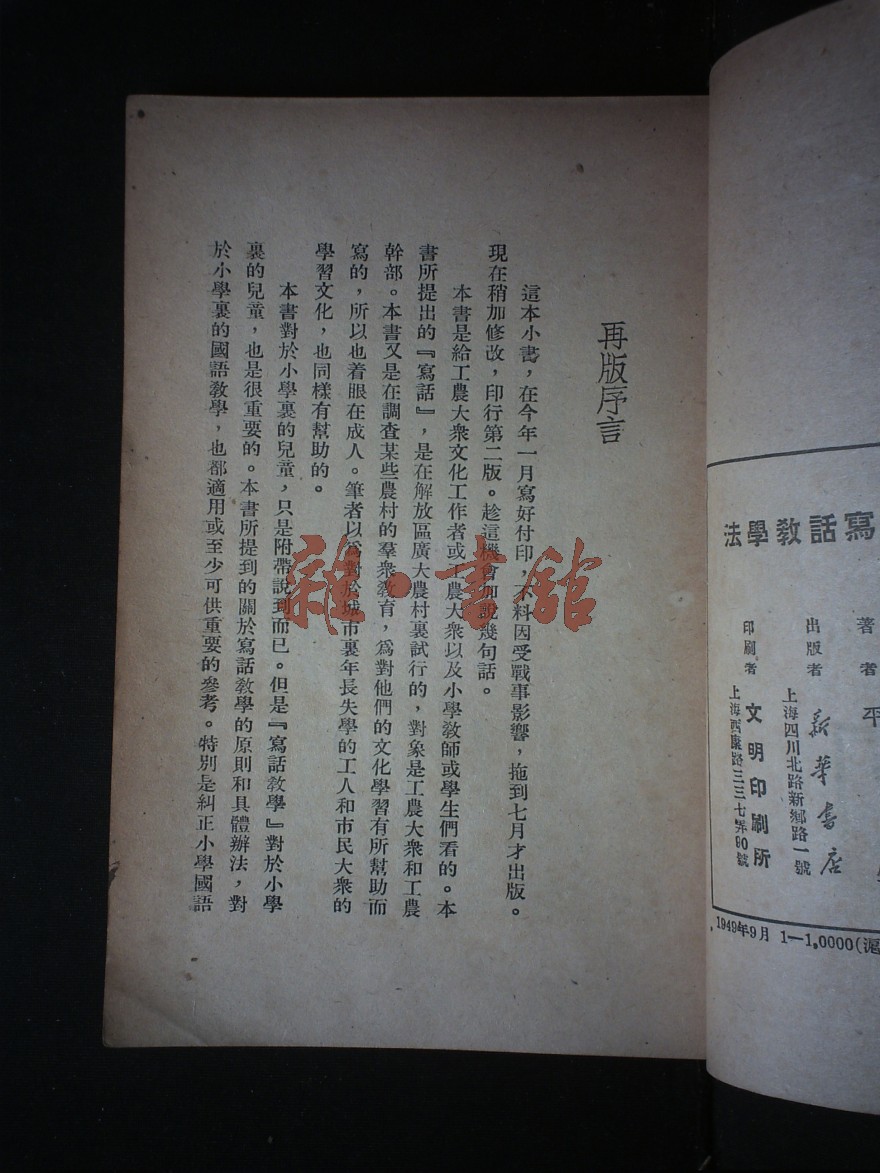 寫話教學法
著者 平
出版者 新華書店
上海四川北路新鄉路一號
印刷者 文明印刷所
上海西康路三三七弄90號
1949年9月 1—1,0000(滬
再版序言
這本小書，在今年一月寫好付印，不料因受戰事影響，拖到七月才出版。
現在稍加修改，印行第二版。趁這機會加說幾句話。
本書是給工農大衆文化工作者或工農大衆以及小學教師或學生們看的。本
書所提出的『寫話』，是在解放區廣大農村裏試行的，對象是工農大衆和工農
幹部。本書又是在調查某些農村的羣衆教育，爲對他們的文化學習有所幫助而
寫的，所以也着眼在成人。筆者以爲對於城市裏年長失學的工人和市民大衆的
學習文化，也同樣有幫助的。
本書對於小學裏的兒童，只是附帶說到而已。但是『寫話教學』對於小學
裏的兒童，也是很重要的。本書所提到的關於寫話教學的原則和具體辦法，對
於小學裏的國語教學，也都適用或至少可供重要的參考。特別是糾正小學國語
雜·書館